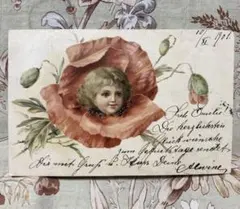 Lieb Emilie!
Die herzlichsten
Glückwünsche
zum Geburtstage sendet
mit Gruß u. Kuss Deine
Alwine